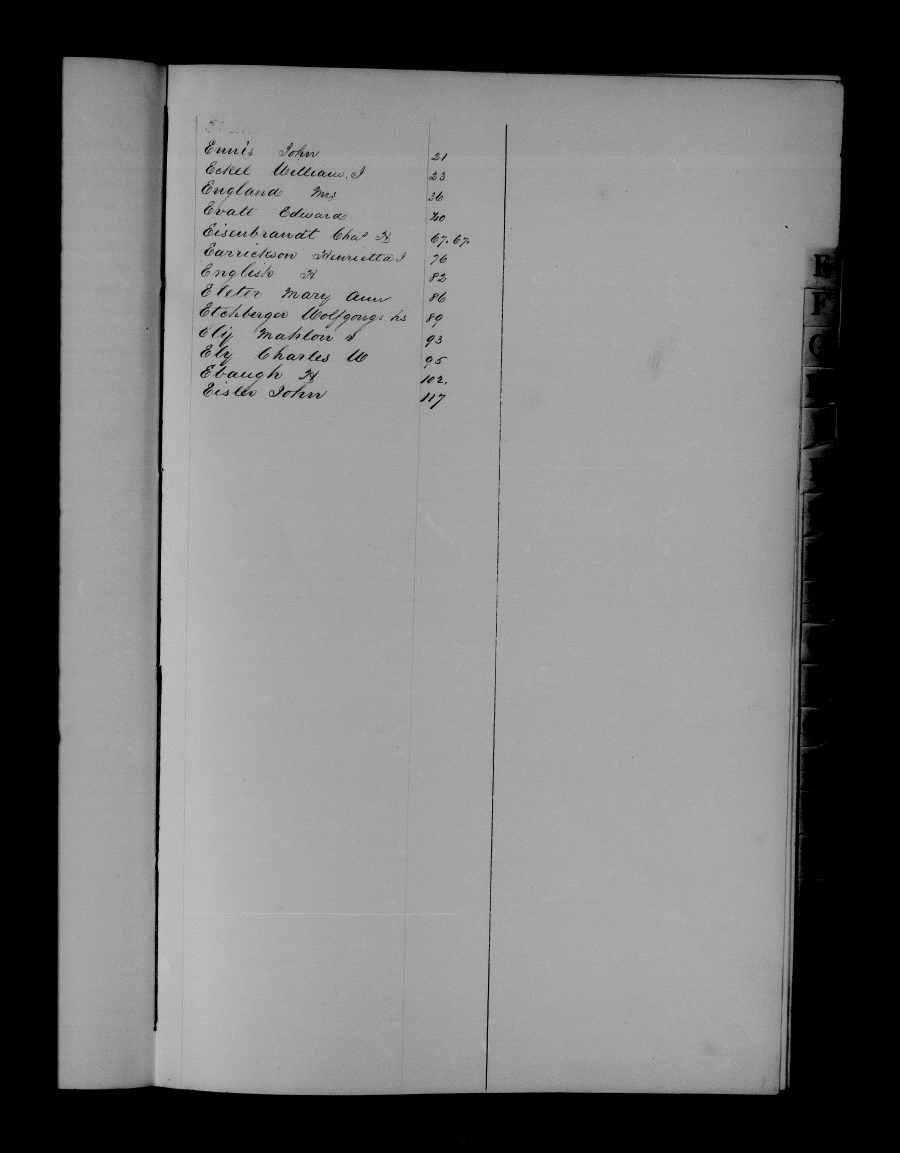 Ennis John 21
Eckel William. J 23
England Mrs 36
Evatt Edward 40
Eisenbrandt Chas H 67. 67.
Earrickson Henrietta J 76
English H 82
Eleter Mary Ann 86
Etchberger Wolfgong hs 89
Ely Mahlon S 93
Ely Charles W 95
Ebaugh H 102.
Eisler John 117
E
F
G